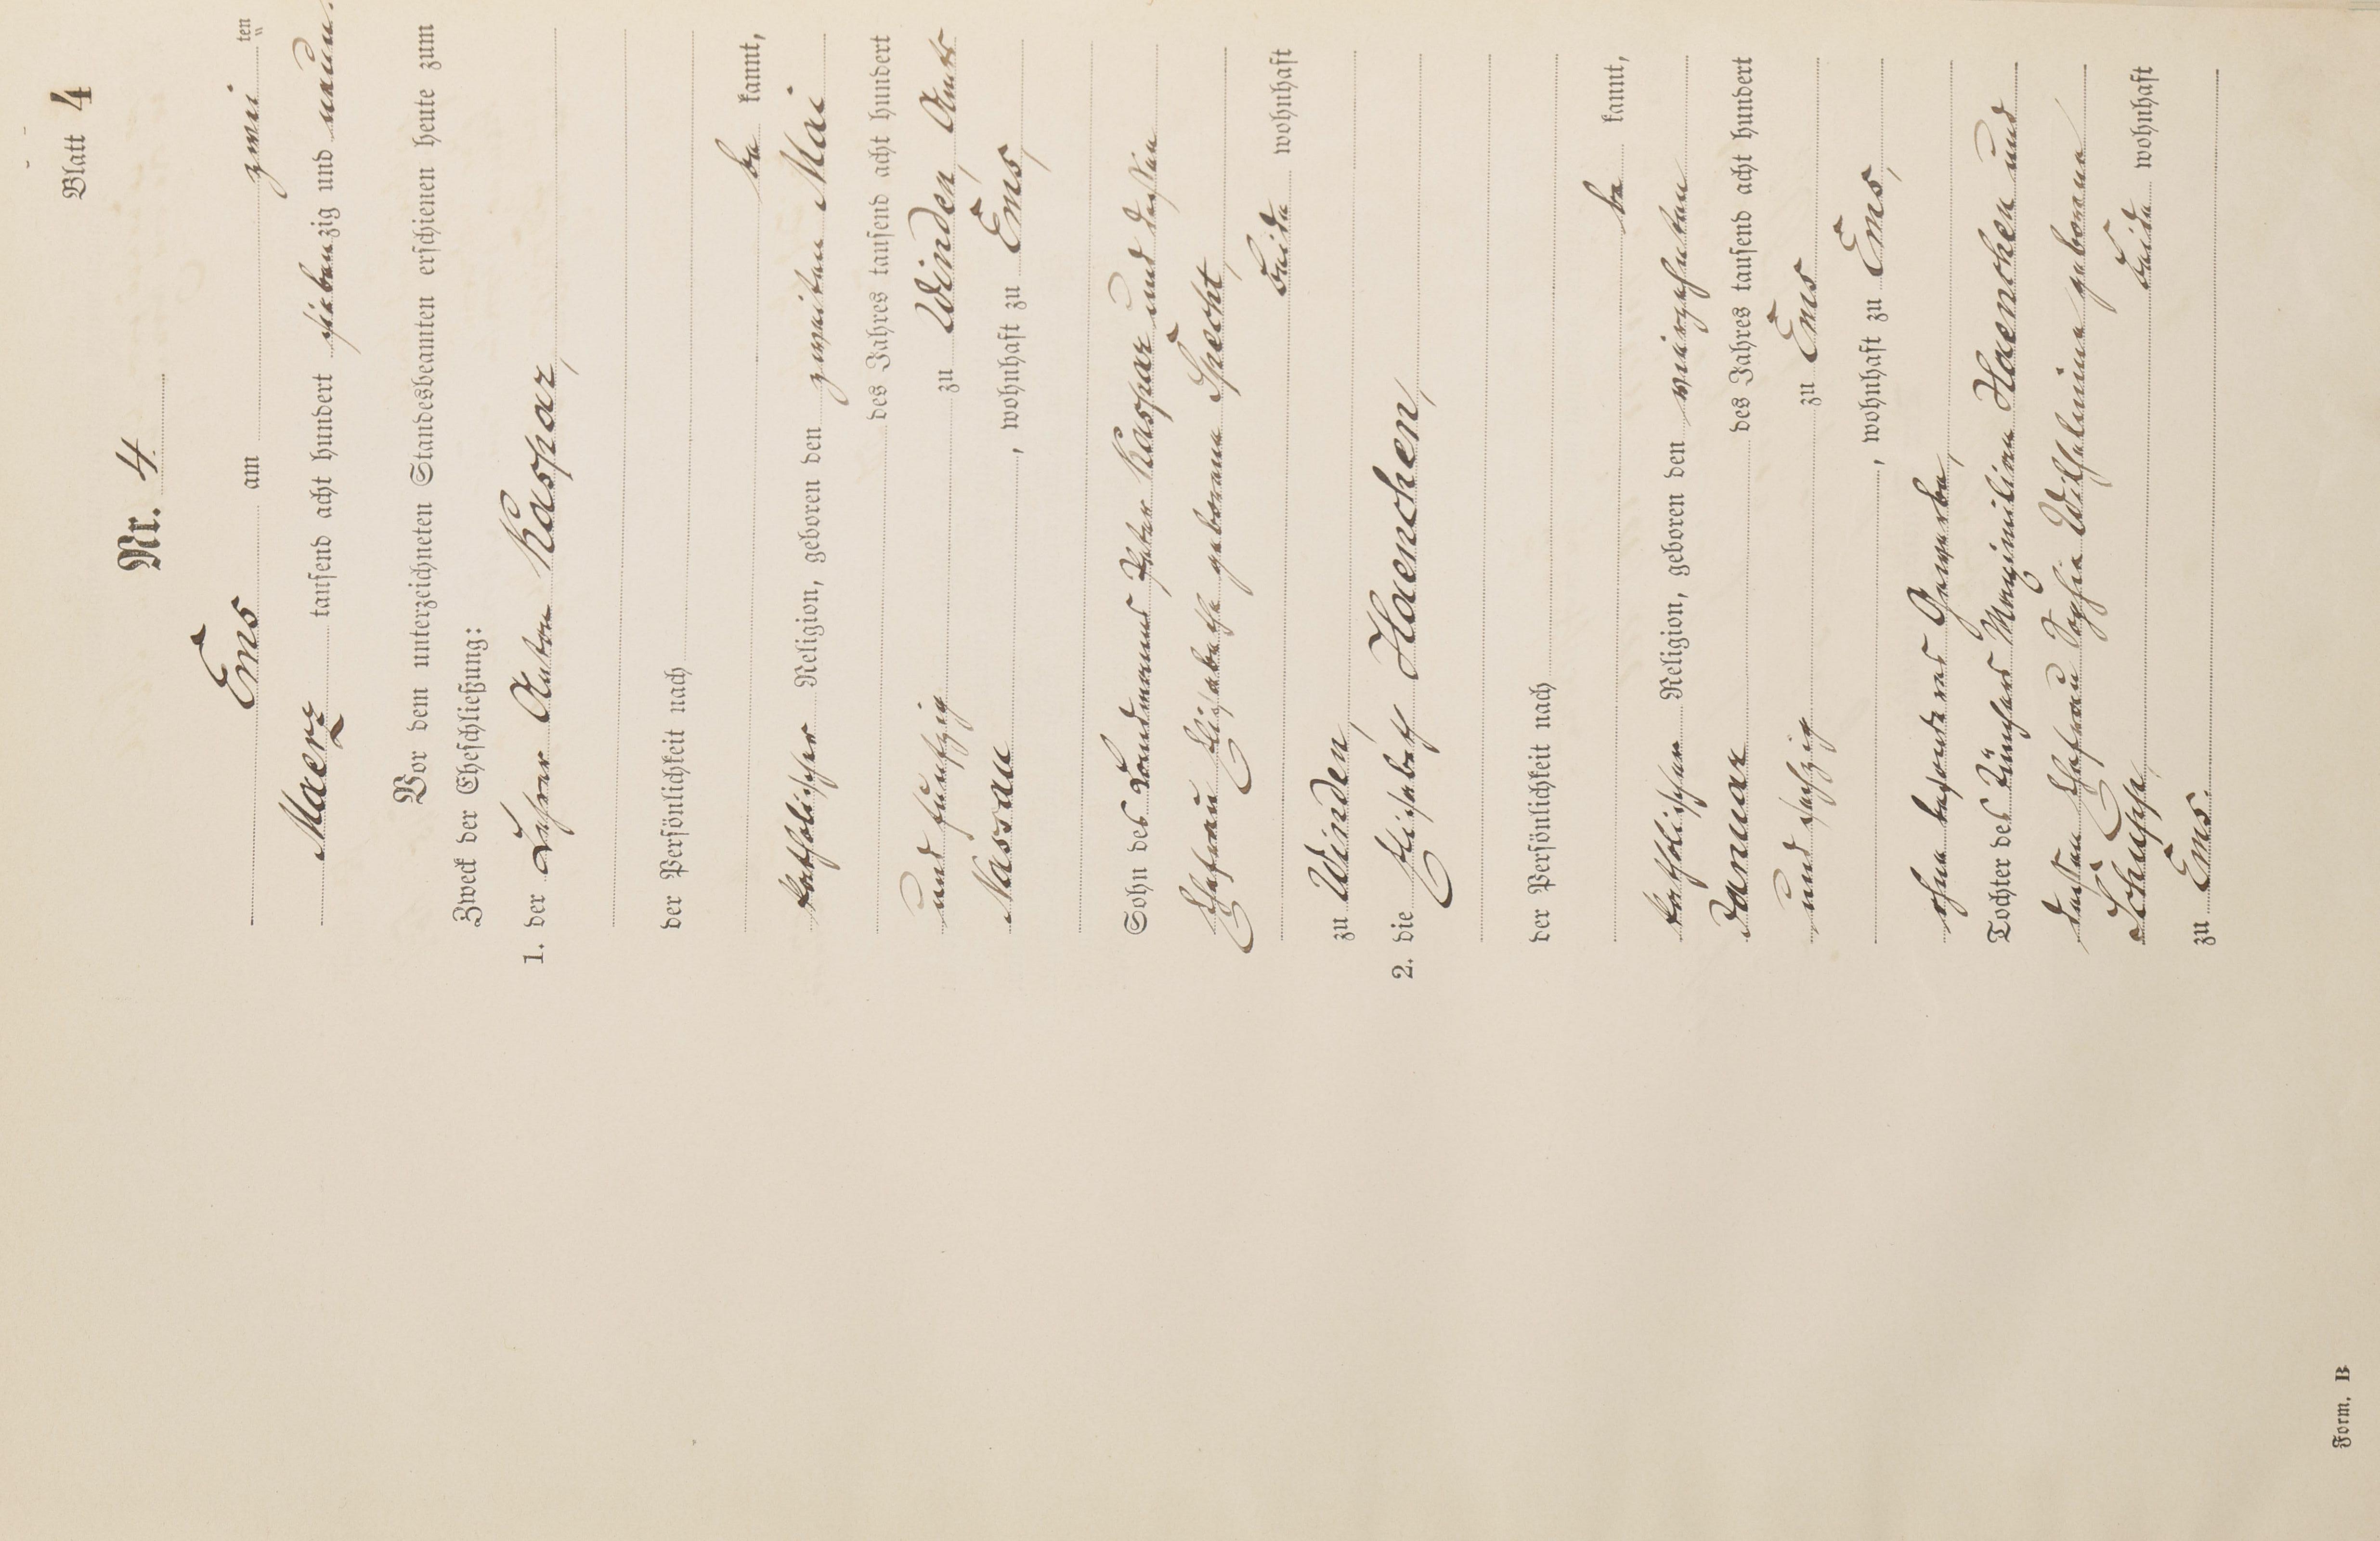 Blatt 4
Nr. 4
Ems am zwei ten
Maerz tausend acht hundert siebenzig und neun.
Vor dem unterzeichneten Standesbeamten erschienen heute zum
Zweck der Eheschließung:
1. der Lehrer Anton Kaspar,
der Persönlichkeit nach
be kannt,
katholischer Religion, geboren den zweiten Mai
des Jahres tausend acht hundert
und funfzig zu Winden, Amts
Nassau, wohnhaft zu Ems,
Sohn des Landmanns Peter Kaspar und dessen
Ehefrau Elisabetha geborene Specht,
beide wohnhaft
zu Winden,
2. die Elisabeth Haenchen,
der Persönlichkeit nach
be kannt,
katholischen Religion, geboren den vierzehnten
Januar des Jahres tausend acht hundert
und sechzig zu Ems
, wohnhaft zu Ems,
ohne besonderes Gewerbe,
Tochter des Tünchers Maximilian Haenchen und
dessen Ehefrau Sophie Wilhelmine geborene
Schupp, beide wohnhaft
zu Ems.
Form. B